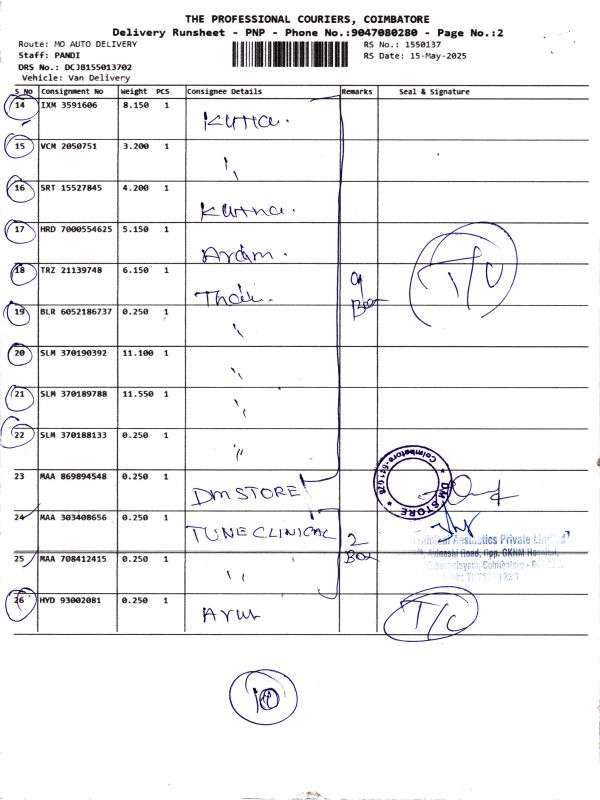 THE PROFESSIONAL COURIERS, COIMBATORE
Delivery Runsheet - PNP - Phone No.:9047080280 - Page No.:2
Route: MO AUTO DELIVERY
RS No.: 1550137
Staff: PANDI
RS Date: 15-May-2025
DRS No.: DCJB155013702
Vehicle: Van Delivery
S No Consignment No Weight PCS Consignee Details Remarks Seal & Signature
14 IXM 3591606 8.150 1
15 VCM 2050751 3.200 1 "
16 SRT 15527845 4.200 1
17 HRD 7000554625 5.150 1 Aram.
18 TRZ 21139748 6.150 1 9 Box T/C
19 BLR 6052186737 0.250 1 "
20 SLM 370190392 11.100 1 "
21 SLM 370189788 11.550 1 "
22 SLM 370188133 0.250 1 "
23 MAA 869894548 0.250 1 DM STORE
DM STORE
Coimbatore-641 028
24 MAA 303408656 0.250 1 TUNE CLINICAL 2 Box
Aesthetics Private Limited
Avinashi Road, Opp. GKNM Hospital,
25 MAA 708412415 0.250 1 "
Coimbatore -
26 HYD 93002081 0.250 1 T/C
10